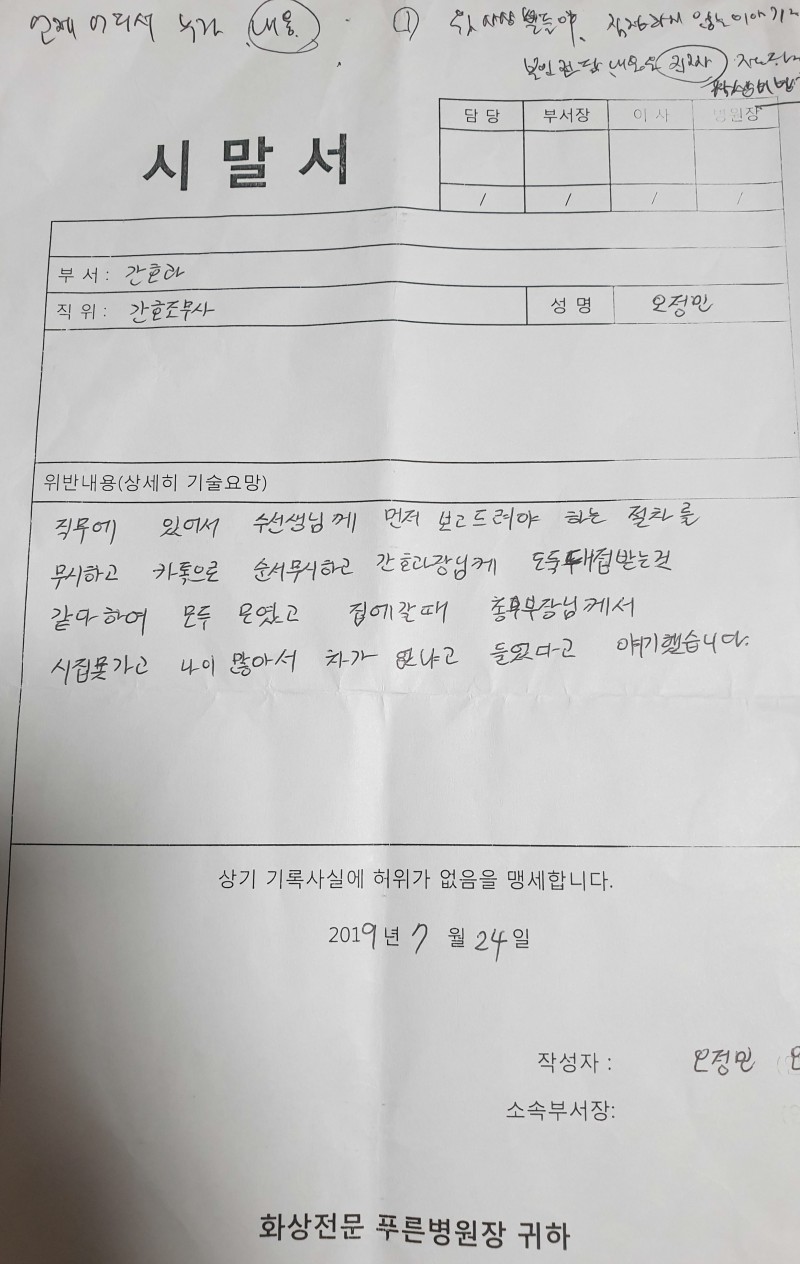 언제 어디서 누가 내용. ①
본인
담 당 부서장 이 사 병원장
시 말 서
/ / / /
부 서 : 간호과
직 위 : 간호조무사 성 명 오정민
위반내용(상세히 기술요망)
직무에 있어서 수선생님께 먼저 보고드려야 하는 절차를
무시하고 카톡으로 순서무시하고 간호과장님께 도둑대접받는것
같다하여 모두 모였고 집에갈때 총무부장님께서
시집못가고 나이 많아서 차가 없냐고 들었다고 얘기했습니다.
상기 기록사실에 허위가 없음을 맹세합니다.
2019년 7 월 24일
작성자 : 오정민
소속부서장:
화상전문 푸른병원장 귀하